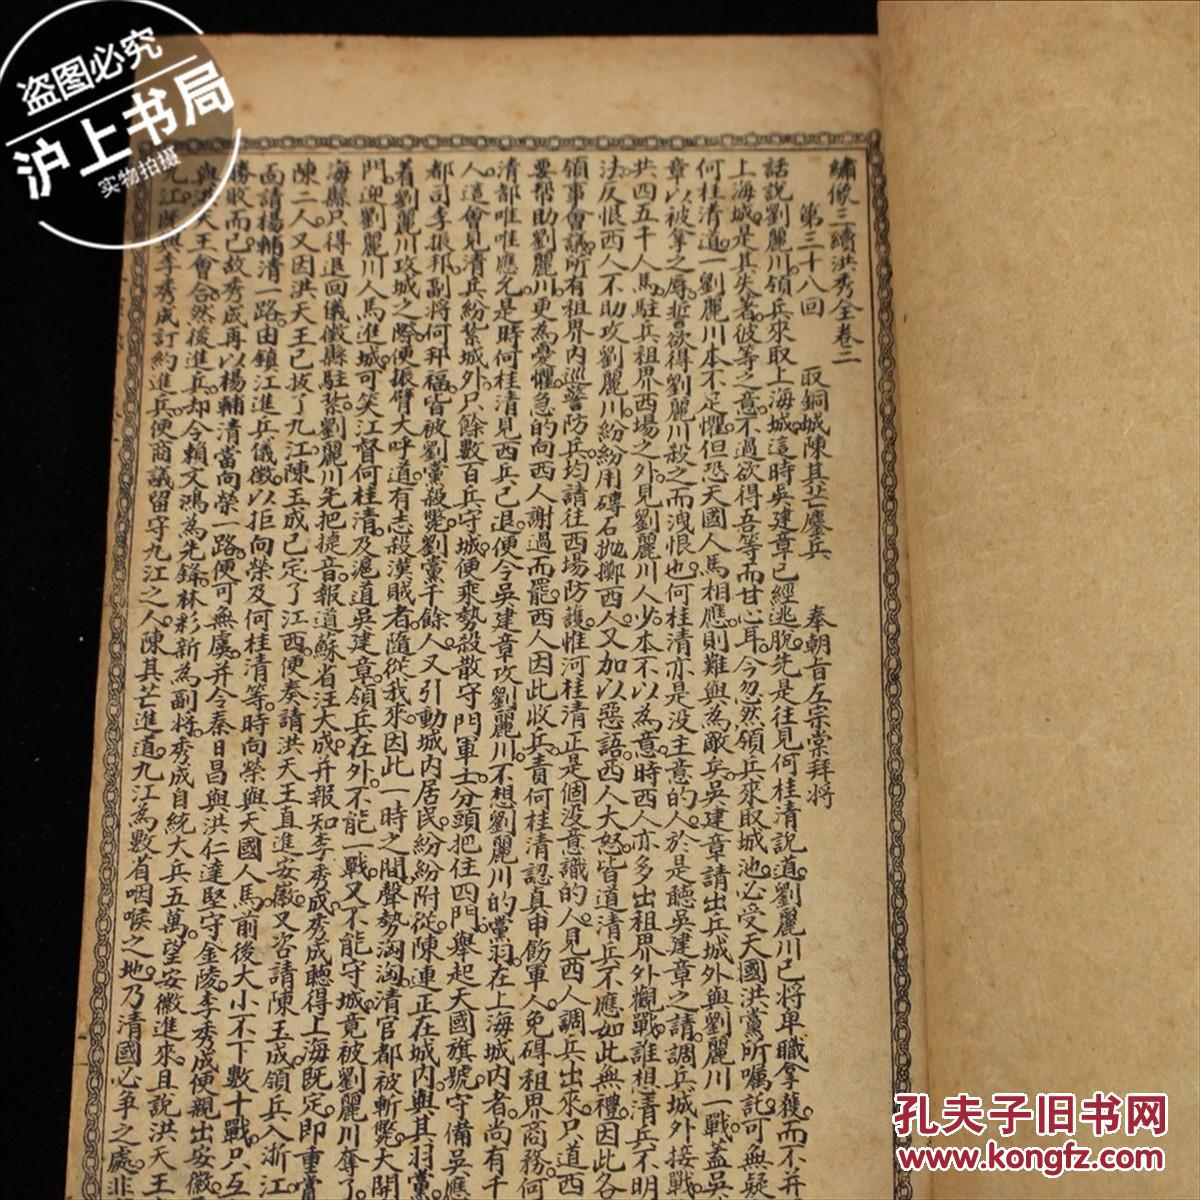 繡像三續洪秀全卷二
第三十八回　取銅城陳其芒鏖兵　奉朝旨左宗棠拜將
話說劉麗川領兵來取上海城這時吳建章已經逃脫先是往見何桂清說道劉麗川已將卑職拿獲而不并
上海城是其失著彼等之意不過欲得吾等而甘心耳今忽然領兵來取城池必受天國洪黨所囑託可無疑
何桂清道一劉麗川本不足懼但恐天國人馬相應則難與為敵矣吳建章請出兵城外與劉麗川一戰蓋吳
章以被拿之辱誓欲得劉麗川殺之而洩恨也何桂清亦是没主意的人於是聽吳建章之請調兵城外接戰
共四五千人馬駐兵租界西場之外見劉麗川人少本不以為意時西人亦多出租界外觀戰誰想清兵不明
法反恨西人不助攻劉麗川紛紛用磚石拋擲西人又加以惡語西人大怒皆道清兵不應如此無禮因此各
領事會議所有租界内巡警防兵均請往西場防護惟河桂清正是個没意識的人見西人調兵出來只道西
要幫助劉麗川更為憂懼急的向西人謝過而罷西人因此收兵責何桂清認真申飭軍人免碍租界商務何
清都唯唯應允是時何桂清見西兵已退便令吳建章攻劉麗川不想劉麗川的黨羽在上海城内者尚有千
人這會見清兵紛紮城外只餘數百兵守城便乘勢殺散守門軍士分頭把住四門舉起天國旗號守備吳應
都司李振邦副將何邦福皆被劉黨殺斃劉黨千餘人又引動城内居民紛紛附從陳連正在城内與其羽黨
着劉麗川攻城之際便振臂大呼道有志殺漢賊者隨從我來因此一時之間聲勢洶洶清官都被斬斃大開
門迎劉麗川人馬進城可笑江督何桂清及滬道吳建章領兵在外不能一戰又不能守城竟被劉麗川奪了
海縣只得退回儀徵縣駐紮劉麗川先把捷音報道蘇省汪大成并報知李秀成秀成聽得上海既定即重賞
陳二人又因洪天王已拔了九江陳玉成已定了江西便奏請洪天王直進安徽又咨請陳玉成領兵入浙江
面請楊輔清一路由鎮江進兵儀徵以拒向榮及何桂清等時向榮與天國人馬前後大小不下數十戰只互
勝敗而已故秀成再以楊輔清當向榮一路便可無虞并令秦日昌與洪仁達堅守金陵李秀成便親出安徽
與洪天王會合然後進兵却令賴文鴻為先鋒林彩新為副將秀成自統大兵五萬望安徽進來且說洪天王
九江既與李秀成訂約進兵便商議留守九江之人陳其芒進道九江為數省咽喉之地乃清國必爭之處非
盗图必究
沪上书局
实物拍摄
孔夫子旧书网
www.kongfz.com